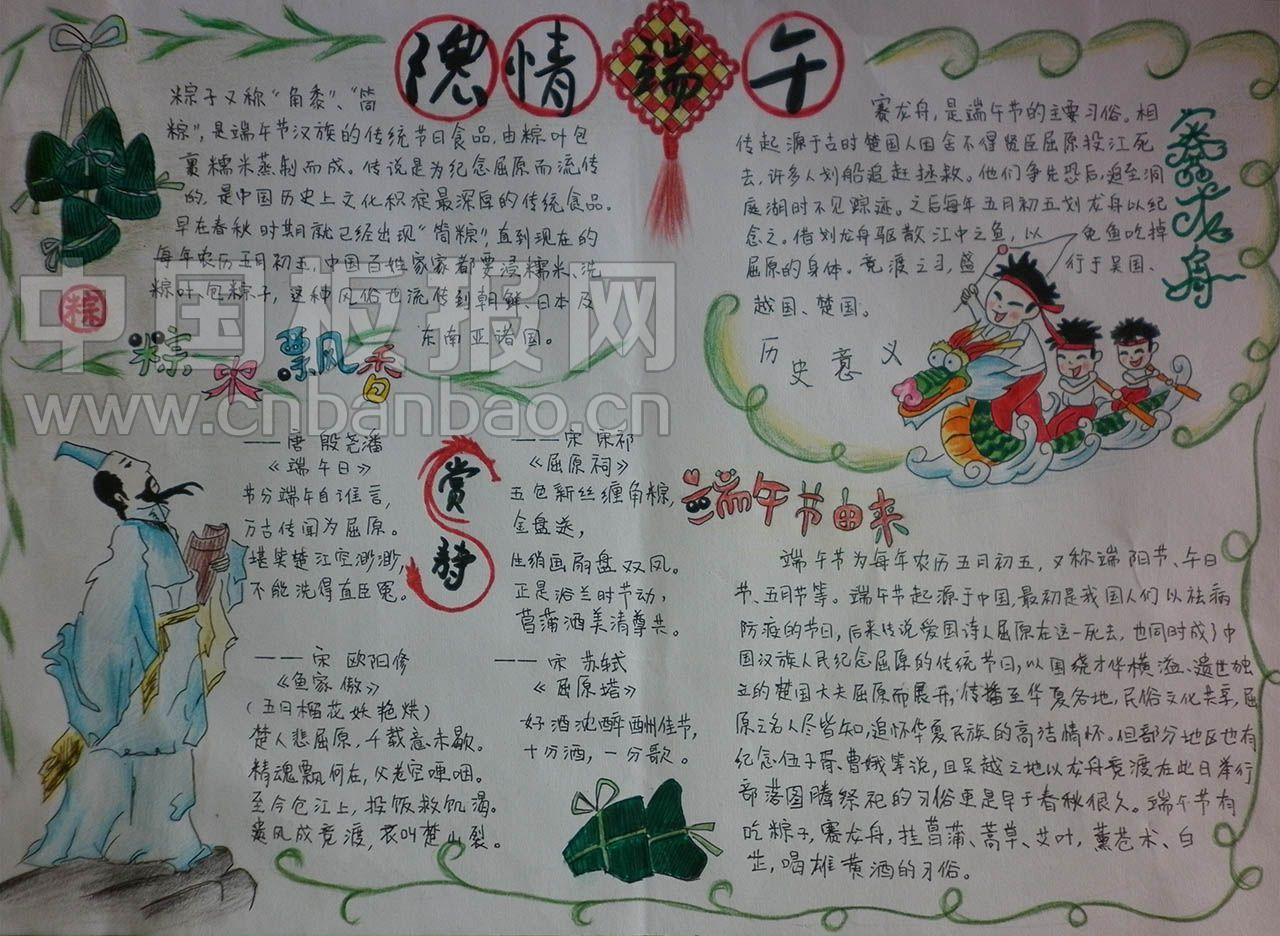 隐情端午
粽子又称“角黍”、“筒
粽”,是端午节汉族的传统节日食品,由粽叶包
裹糯米蒸制而成。传说是为纪念屈原而流传
的,是中国历史上文化积淀最深厚的传统食品。
早在春秋时期就已经出现“筒粽”,直到现在的
每年农历五月初五,中国百姓家家都要浸糯米、洗
粽叶、包粽子,这种风俗也流传到朝鲜、日本及
东南亚诸国。
粽
粽飘香
中国板报网
www.cnbanbao.cn
赛龙舟
赛龙舟,是端午节的主要习俗。相
传起源于古时楚国人因舍不得贤臣屈原投江死
去,许多人划船追赶拯救。他们争先恐后,追至洞
庭湖时不见踪迹。之后每年五月初五划龙舟以纪
念之。借划龙舟驱散江中之鱼,以免鱼吃掉
屈原的身体。竞渡之习,盛行于吴国、
越国、楚国。
历史意义
赏诗
——唐 殷尧潘
《端午日》
节分端午自谁言,
万古传闻为屈原。
堪笑楚江空渺渺,
不能洗得直臣冤。
——宋 宋祁
《屈原祠》
五包新丝缠角粽,
金盘送,
生绡画扇盘双凤。
正是浴兰时节动,
菖蒲酒美清尊共。
——宋 欧阳修
《鱼家傲》
(五月榴花妖艳烘)
楚人悲屈原,千载意未歇。
精魂飘何在,父老空哽咽。
至今仓江上,投饭救饥渴。
遗风成竞渡,哀叫楚山裂。
——宋 苏轼
《屈原塔》
好酒沈醉酬佳节,
十分酒,一分歌。
端午节由来
端午节为每年农历五月初五,又称端阳节、午日
节、五月节等。端午节起源于中国,最初是我国人们以祛病
防疫的节日,后来传说爱国诗人屈原在这一死去,也同时成了中
国汉族人民纪念屈原的传统节日,以围绕才华横溢、遗世独
立的楚国大夫屈原而展开,传播至华夏各地,民俗文化共享,屈
原之名人尽皆知,追怀华夏民族的高洁情怀。但部分地区也有
纪念伍子胥、曹娥等说,且吴越之地以龙舟竞渡在此日举行
部落图腾祭祀的习俗更是早于春秋很久。端午节有
吃粽子,赛龙舟,挂菖蒲、蒿草、艾叶,薰苍术、白
芷,喝雄黄酒的习俗。